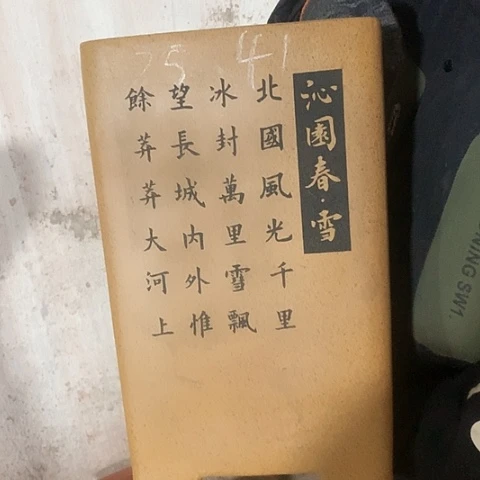 75.41
沁園春·雪
北國風光千里
冰封萬里雪飄
望長城内外惟
餘莽莽大河上
NING SW1.